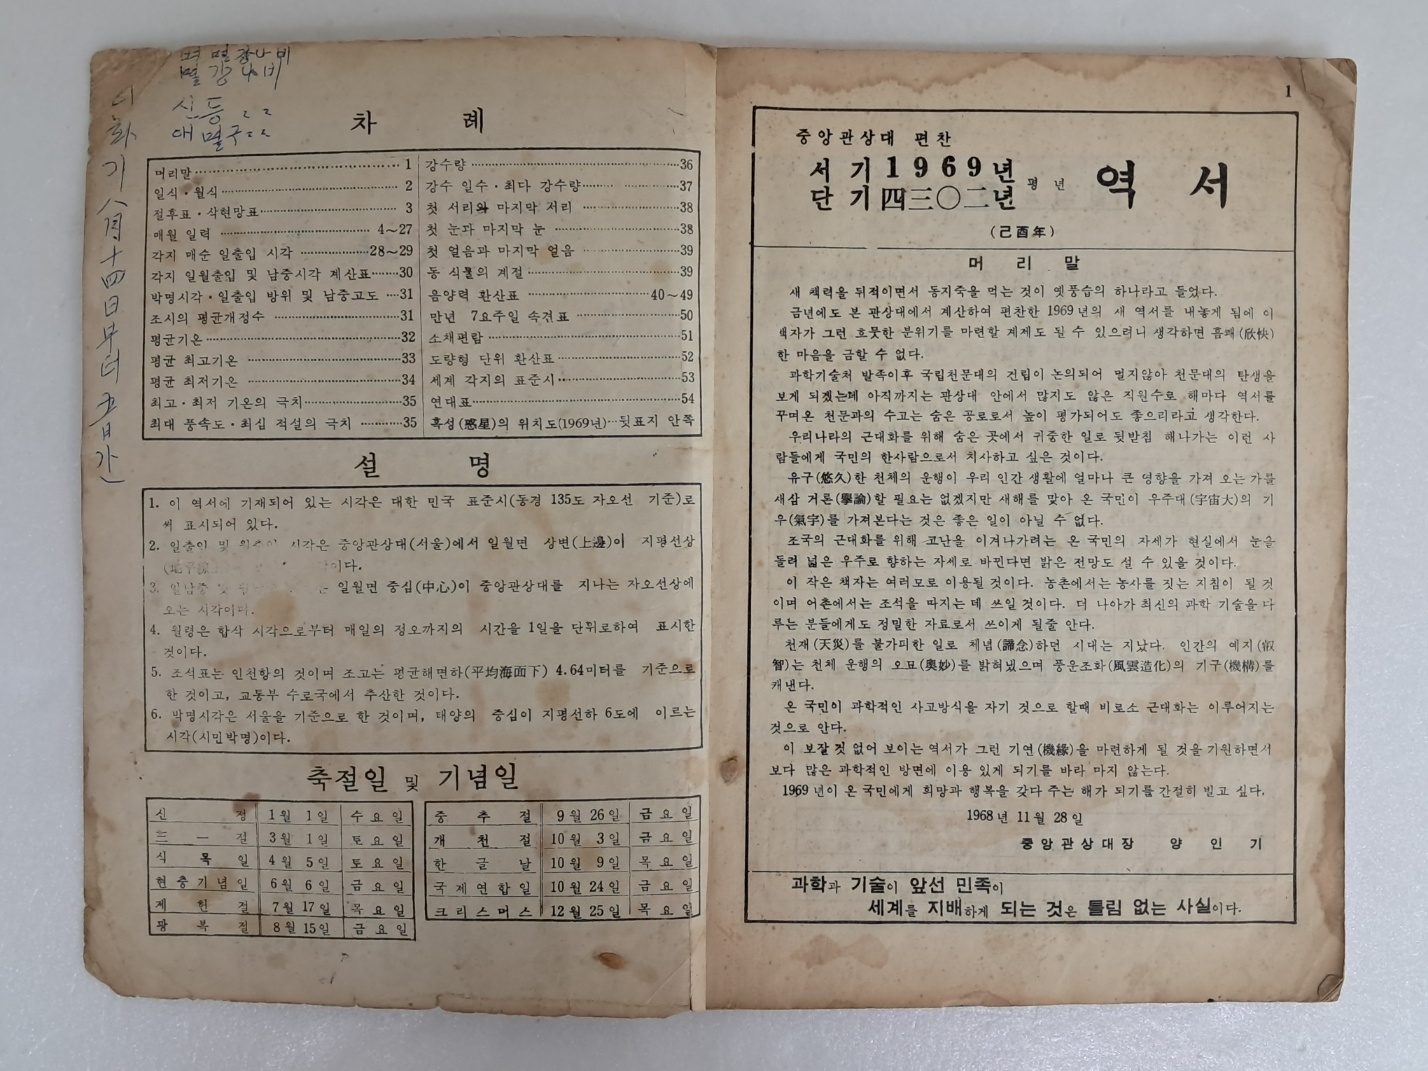 멸강나비
차 례
머리말 1
일식·월식 2
절후표·삭현망표 3
매월 일력 4~27
각지 매순 일출입 시각 28~29
각지 일월출입 및 남중시각 계산표 30
박명시각·일출입 방위 및 남중고도 31
조시의 평균개정수 31
평균기온 32
평균 최고기온 33
평균 최저기온 34
최고·최저 기온의 극치 35
최대 풍속도·최심 적설의 극치 35
강수량 36
강수 일수·최다 강수량 37
첫 서리와 마지막 서리 38
첫 눈과 마지막 눈 38
첫 얼음과 마지막 얼음 39
동 식물의 계절 39
음양력 환산표 40~49
만년 7요주일 속견표 50
소채편람 51
도량형 단위 환산표 52
세계 각지의 표준시 53
연대표 54
혹성(惑星)의 위치도(1969년) 뒷표지 안쪽
설 명
1. 이 역서에 기재되어 있는 시각은 대한 민국 표준시(동경 135도 자오선 기준)로
써 표시되어 있다.
2. 일출입 및 시각은 중앙관상대(서울)에서 일월면 상변(上邊)이 지평선상
이다.
3. 일월면 중심(中心)이 중앙관상대를 지나는 자오선상에
오는 시각이다.
4. 월령은 합삭 시각으로부터 매일의 정오까지의 시간을 1일을 단위로하여 표시한
것이다.
5. 조석표는 인천항의 것이며 조고는 평균해면하(平均海面下) 4.64미터를 기준으로
한 것이고, 교통부 수로국에서 추산한 것이다.
6. 박명시각은 서울을 기준으로 한 것이며, 태양의 중심이 지평선하 6도에 이르는
시각(시민박명)이다.
축절일 및 기념일
신 정 1월 1일 수요일
三 一 절 3월 1일 토요일
식 목 일 4월 5일 토요일
현충기념일 6월 6일 금요일
제 헌 절 7월 17일 목요일
광 복 절 8월 15일 금요일
중 추 절 9월 26일 금요일
개 천 절 10월 3일 금요일
한 글 날 10월 9일 목요일
국제연합일 10월 24일 금요일
크리스머스 12월 25일 목요일
1
중앙관상대 편찬
서 기 1969년
단 기 四三〇二년
평 년
역 서
(己酉年)
머 리 말
새 책력을 뒤적이면서 동지죽을 먹는 것이 옛풍습의 하나라고 들었다.
금년에도 본 관상대에서 계산하여 편찬한 1969년의 새 역서를 내놓게 됨에 이
책자가 그런 흐뭇한 분위기를 마련할 계제도 될 수 있으려니 생각하면 흠쾌(欣快)
한 마음을 금할 수 없다.
과학기술처 발족이후 국립천문대의 건립이 논의되어 멀지않아 천문대의 탄생을
보게 되겠는데 아직까지는 관상대 안에서 많지도 않은 직원수로 해마다 역서를
꾸며온 천문과의 수고는 숨은 공로로서 높이 평가되어도 좋으리라고 생각한다.
우리나라의 근대화를 위해 숨은 곳에서 귀중한 일로 뒷받침 해나가는 이런 사
람들에게 국민의 한사람으로서 치사하고 싶은 것이다.
유구(悠久)한 천체의 운행이 우리 인간 생활에 얼마나 큰 영향을 가져 오는가를
새삼 거론(擧論)할 필요는 없겠지만 새해를 맞아 온 국민이 우주대(宇宙大)의 기
우(氣宇)를 가져본다는 것은 좋은 일이 아닐 수 없다.
조국의 근대화를 위해 고난을 이겨나가려는 온 국민의 자세가 현실에서 눈을
돌려 넓은 우주로 향하는 자세로 바뀐다면 밝은 전망도 설 수 있을 것이다.
이 작은 책자는 여러모로 이용될 것이다. 농촌에서는 농사를 짓는 지침이 될 것
이며 어촌에서는 조석을 따지는 데 쓰일 것이다. 더 나아가 최신의 과학 기술을 다
루는 분들에게도 정밀한 자료로서 쓰이게 될줄 안다.
천재(天災)를 불가피한 일로 체념(諦念)하던 시대는 지났다. 인간의 예지(叡
智)는 천체 운행의 오묘(奧妙)를 밝혀냈으며 풍운조화(風雲造化)의 기구(機構)를
캐낸다.
온 국민이 과학적인 사고방식을 자기 것으로 할때 비로소 근대화는 이루어지는
것으로 안다.
이 보잘것 없어 보이는 역서가 그런 기연(機緣)을 마련하게 될 것을 기원하면서
보다 많은 과학적인 방면에 이용 있게 되기를 바라 마지 않는다.
1969년이 온 국민에게 희망과 행복을 갖다 주는 해가 되기를 간절히 빌고 싶다.
1968년 11월 28일
중앙관상대장 양 인 기
과학과 기술이 앞선 민족이
세계를 지배하게 되는 것은 틀림 없는 사실이다.